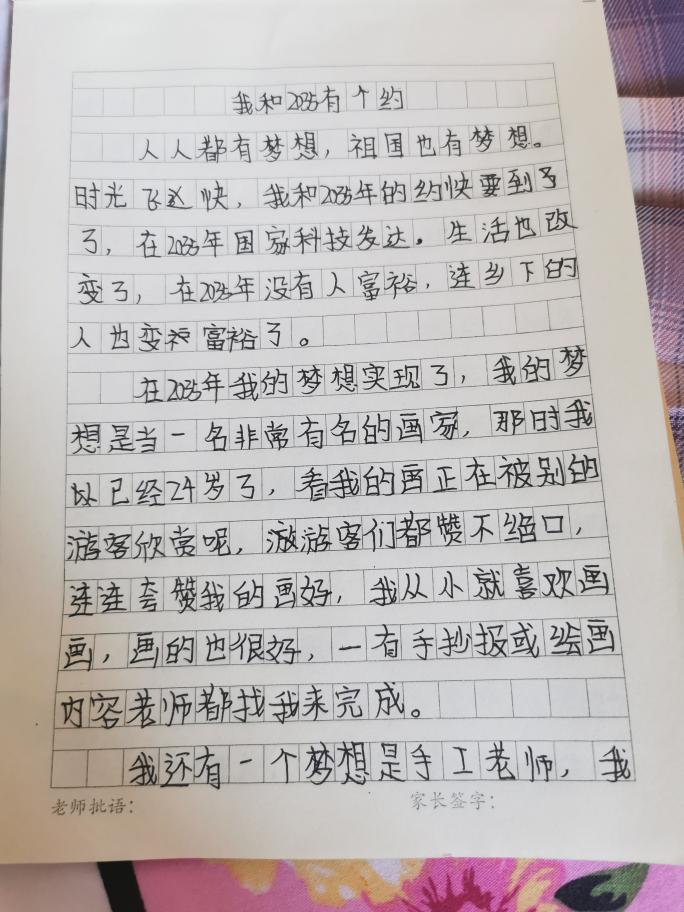 我和2035有个约
人人都有梦想，祖国也有梦想。
时光飞快，我和2035年的约快要到了
了，在2035年国家科技发达。生活也改
变了，在2035年没有人富裕，连乡下的
人也变富裕了。
在2035年我的梦想实现了，我的梦
想是当一名非常有名的画家，那时我
以已经24岁了，看我的画正在被别的
游客欣赏呢，游游客们都赞不绝口，
连连夸赞我的画好，我从小就喜欢画
画，画的也很好，一有手抄报或绘画
内容老师都找我来完成。
我还有一个梦想是手工老师，我
老师批语：
家长签字：